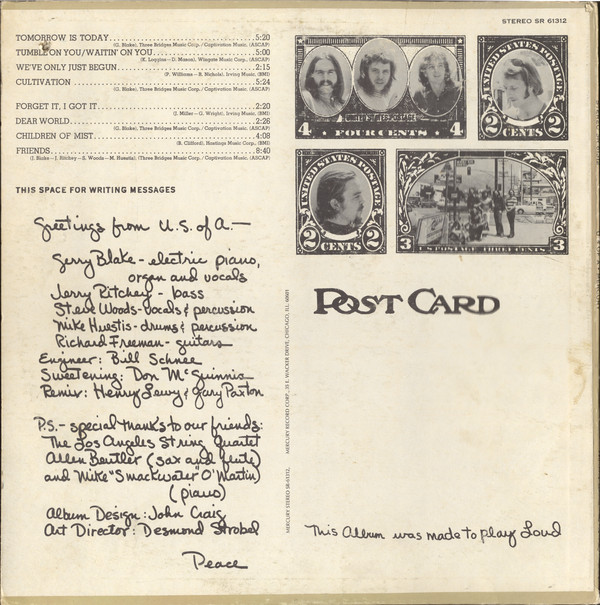 STEREO SR 61312
TOMORROW IS TODAY 5:20
(G. Blake), Three Bridges Music Corp./Captivation Music, (ASCAP)
TUMBLE ON YOU/WAITIN' ON YOU 5:00
(K. Loggins - D. Mason), Wingate Music Corp., (ASCAP)
WE'VE ONLY JUST BEGUN 2:15
(P. Williams - R. Nichols), Irving Music, (BMI)
CULTIVATION 5:24
(G. Blake), Three Bridges Music Corp./Captivation Music, (ASCAP)
FORGET IT, I GOT IT 2:20
(J. Miller - G. Wright), Irving Music, (BMI)
DEAR WORLD 2:26
(G. Blake), Three Bridges Music Corp./Captivation Music, (ASCAP)
CHILDREN OF MIST 4:08
(B. Clifford), Hastings Music Corp., (BMI)
FRIENDS 8:40
(J. Blake - J. Ritchey - S. Woods - M. Huestis), (Three Bridges Music Corp./Captivation Music, (ASCAP)
THIS SPACE FOR WRITING MESSAGES
Greetings from U.S. of A.—
Gerry Blake - electric piano,
organ and vocals
Jerry Ritchey - bass
Steve Woods - vocals & percussion
Mike Huestis - drums & percussion
Richard Freeman - guitars
Engineer: Bill Schnee
Sweetening: Don McGinnis
Remix: Henry Lewy & Gary Paxton
P.S. - special thanks to our friends:
The Los Angeles String Quartet
Allen Beutler (sax and flute)
and Mike "Smackwater" O'Martin)
(piano)
Album Design: John Craig
Art Director: Desmond Strobel
Peace
UNITED STATES POSTAGE
4 FOUR CENTS 4
UNITED STATES POSTAGE
2 CENTS 2
UNITED STATES POSTAGE
2 CENTS 2
3 U.S. POSTAGE THREE CENTS 3
POST CARD
MERCURY STEREO SR-61312, MERCURY RECORD CORP., 35 E. WACKER DRIVE, CHICAGO, ILL. 60601
This Album was made to play Loud